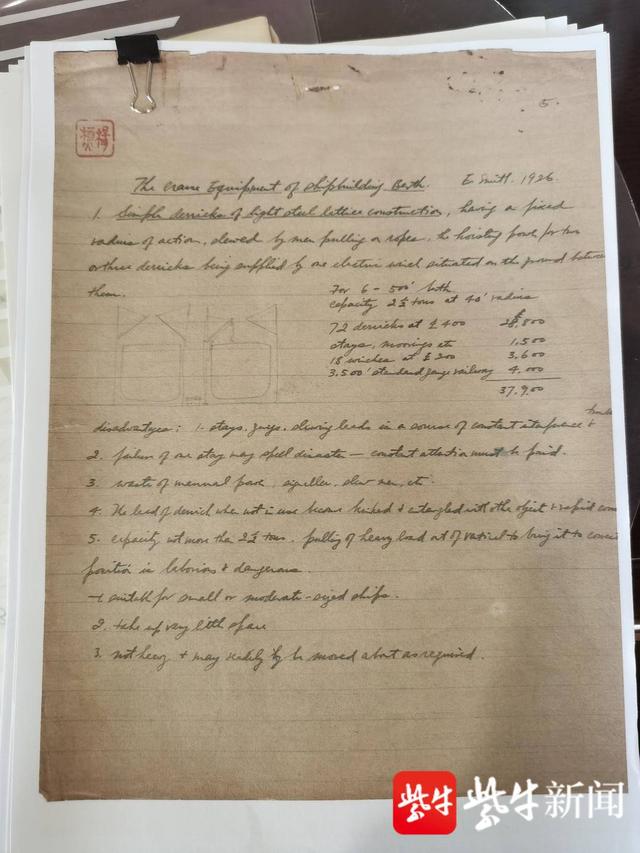 5.
The Crane Equipment of Shipbuilding Berth. E. Smith. 1926
1. Simple derricks of light steel lattice construction, having a fixed
radius of action, slewed by men pulling on ropes, the hoisting power for two
or three derricks being supplied by one electric winch situated on the ground between
them.
For 6 - 500' berth
capacity 2½ tons at 40' radius
72 derricks at £400 28,800
stays, moorings etc 1,500
18 winches at £200 3,600
3,500' standard gauge railway 4,000
37,900
disadvantages: 1. stays, guys, slewing leads in a source of constant &
2. failure of one stay may spell disaster — constant attention must be paid.
3. waste of manual power, signaller, slew men, etc.
4. The lead of derrick when not in use become kinked & entangled with other object &
5. capacity not more than 2½ tons. pulling of heavy load out of vertical to bring it to
position is laborious & dangerous.
suitable for small or moderate-sized ships.
2. take up very little space
3. not heavy & may readily be moved about as required.
紫牛 紫牛新闻